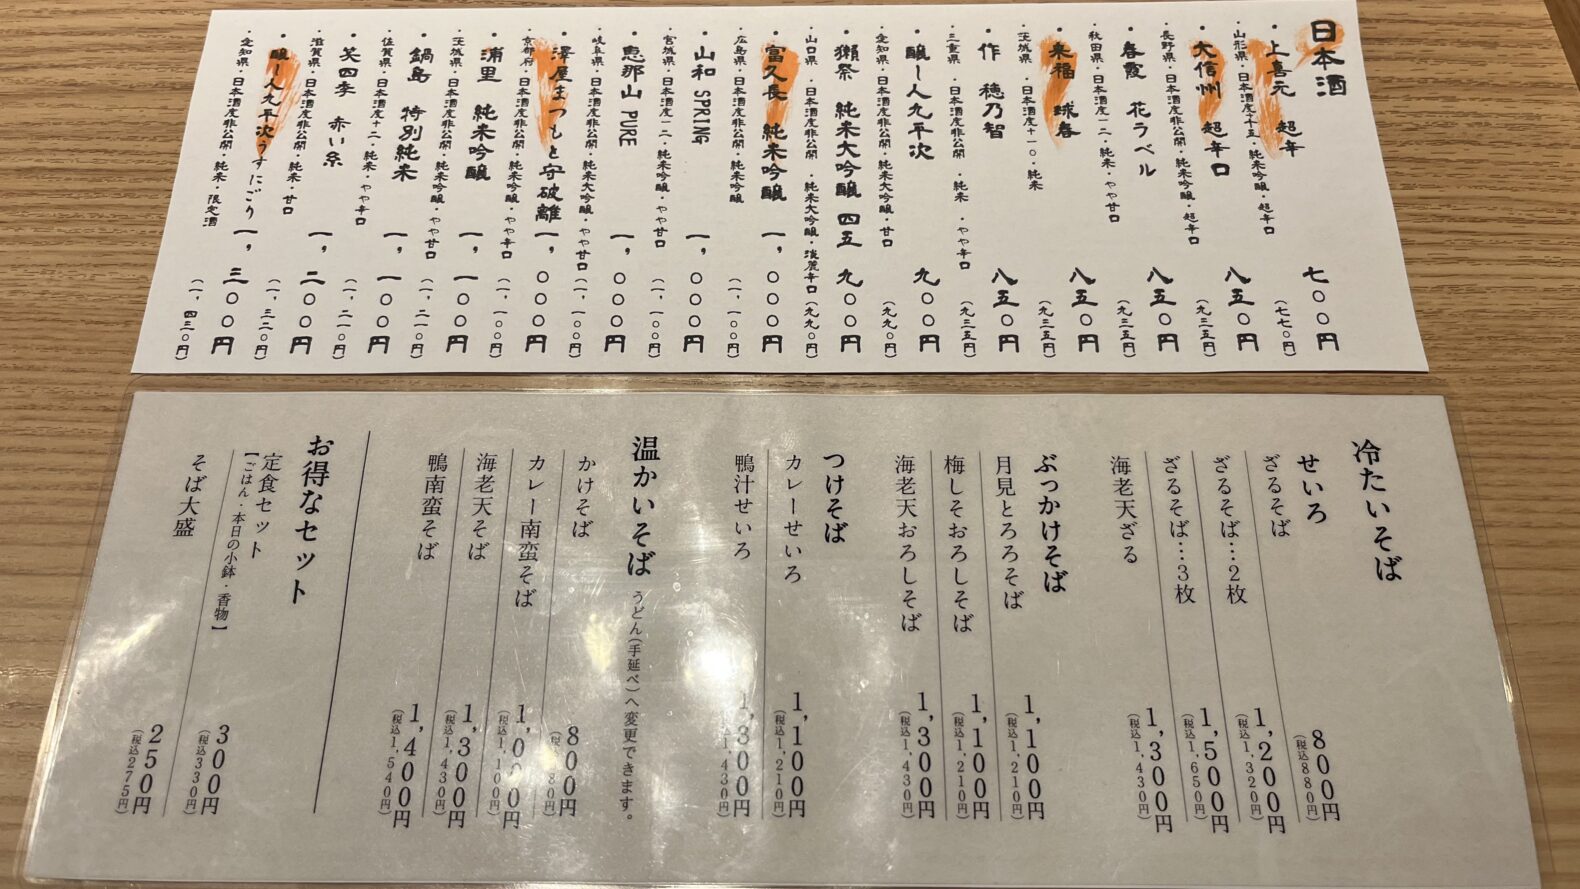 日本酒
・上喜元 超辛 七〇〇円
山形県・日本酒度十五・純米吟醸・超辛 (七七〇円)
・大信州 超辛口 八五〇円
長野県・日本酒度非公開・純米吟醸・超辛 (九三五円)
・春霞 花ラベル 八五〇円
秋田県・日本酒度一二・純米・やや甘口 (九三五円)
・来福 球春 八五〇円
茨城県・日本酒度十一〇・純米 (九三五円)
・作 穂乃智 八五〇円
三重県・日本酒度非公開・純米・やや辛口 (九三五円)
・醸し人九平次 九〇〇円
愛知県・日本酒度非公開・純米大吟醸・甘口 (九九〇円)
・獺祭 純米大吟醸 四五 九〇〇円
山口県・日本酒度非公開・純米大吟醸・淡麗辛口 (九九〇円)
・富久長 純米吟醸 一,〇〇〇円
広島県・日本酒度非公開・純米吟醸 (一,一〇〇円)
・山和 SPRING 一,〇〇〇円
宮城県・日本酒度一二・純米吟醸・やや甘口 (一,一〇〇円)
・恵那山 PURE 一,〇〇〇円
岐阜県・日本酒度非公開・純米大吟醸・やや甘口 (一,一〇〇円)
・澤屋まつもと守破離 一,〇〇〇円
京都府・日本酒度非公開・純米・やや辛口 (一,一〇〇円)
・浦里 純米吟醸 一,一〇〇円
茨城県・日本酒度非公開・純米吟醸・やや甘口 (一,二一〇円)
・鍋島 特別純米 一,一〇〇円
佐賀県・日本酒度十二・純米・やや辛口 (一,二一〇円)
・笑四季 赤い糸 一,二〇〇円
滋賀県・日本酒度非公開・純米・甘口 (一,三二〇円)
・醸し人九平次うすにごり 一,三〇〇円
愛知県・日本酒度非公開・純米・限定酒 (一,四三〇円)
冷たいそば
せいろ
ざるそば 800円
(税込880円)
ざるそば…2枚 1,200円
(税込1,320円)
ざるそば…3枚 1,500円
(税込1,650円)
海老天ざる 1,300円
(税込1,430円)
ぶっかけそば
月見とろろそば 1,100円
(税込1,210円)
梅しそおろしそば 1,100円
(税込1,210円)
海老天おろしそば 1,300円
(税込1,430円)
つけそば
カレーせいろ 1,100円
(税込1,210円)
鴨汁せいろ 1,300円
(税込1,430円)
温かいそば うどん(手延べ)へ変更できます。
かけそば 800円
(税込880円)
カレー南蛮そば 1,000円
(税込1,100円)
海老天そば 1,300円
(税込1,430円)
鴨南蛮そば 1,400円
(税込1,540円)
お得なセット
定食セット 300円
【ごはん・本日の小鉢・香物】 (税込330円)
そば大盛 250円
(税込275円)